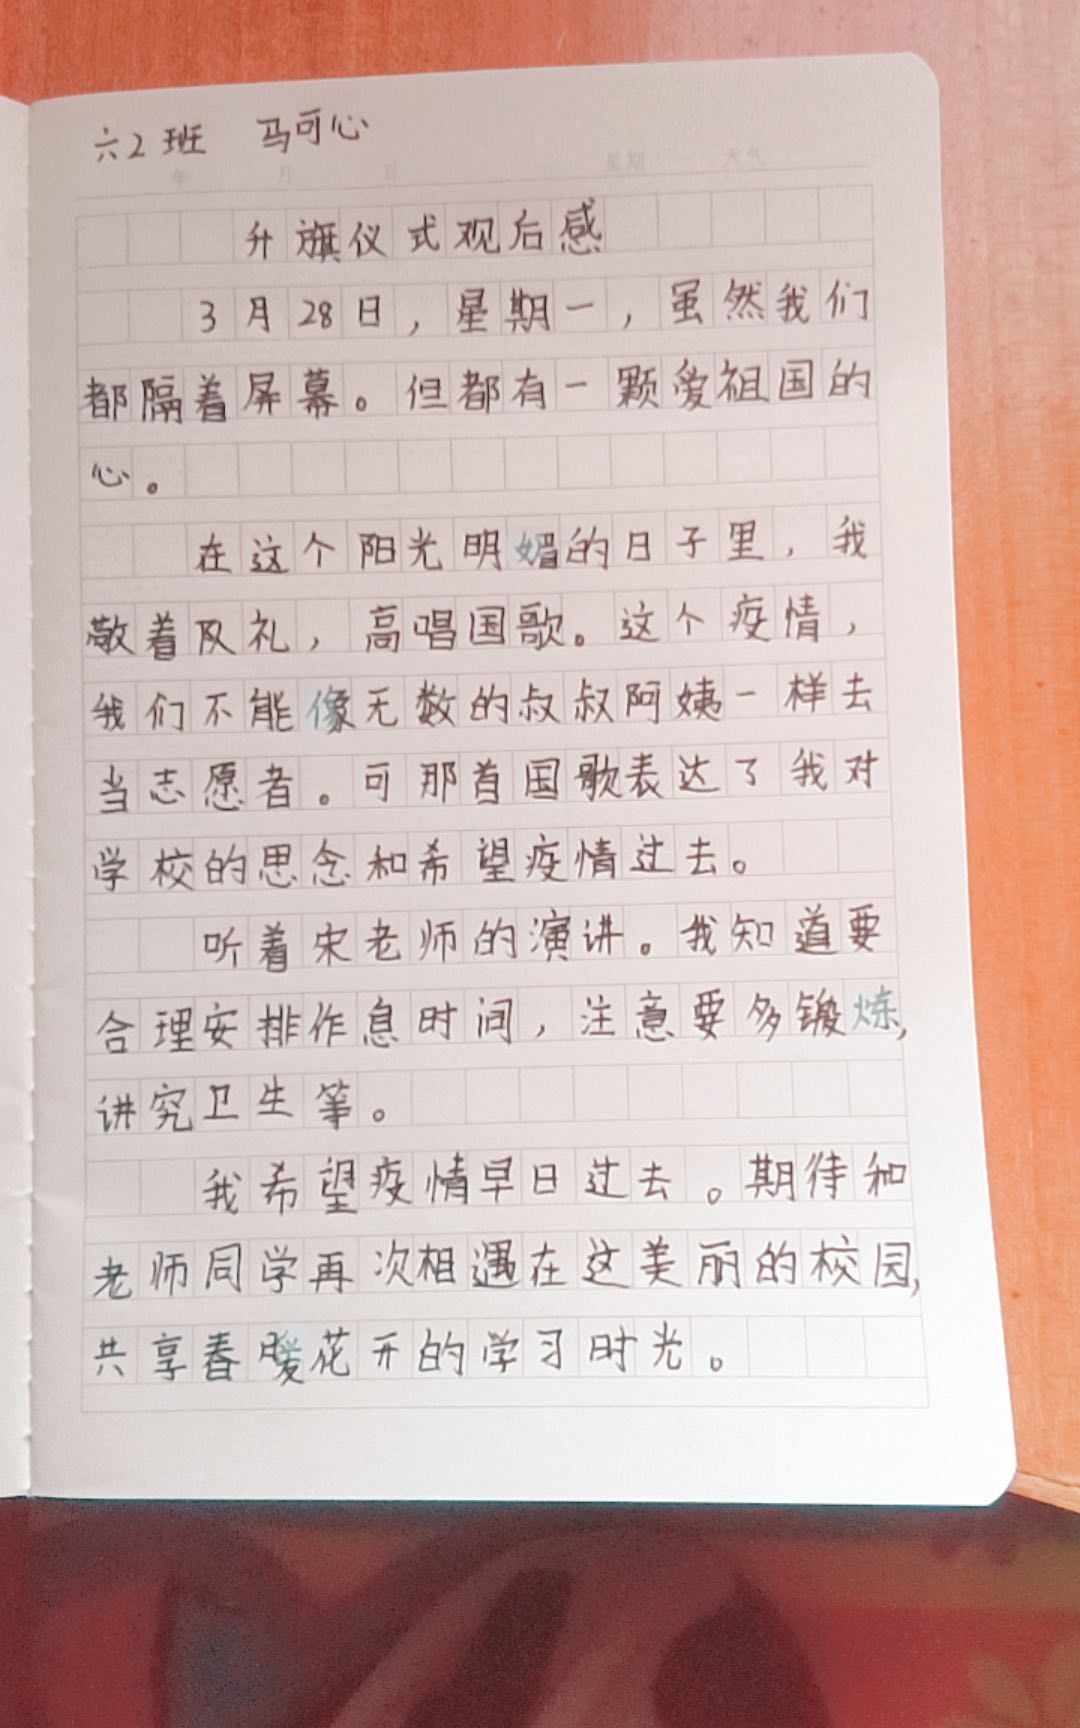 六2班 马可心
年 月 日 星期 天气
升旗仪式观后感
3月28日，星期一，虽然我们
都隔着屏幕。但都有一颗爱祖国的
心。
在这个阳光明媚的日子里，我
敬着队礼，高唱国歌。这个疫情，
我们不能像无数的叔叔阿姨一样去
当志愿者。可那首国歌表达了我对
学校的思念和希望疫情过去。
听着宋老师的演讲。我知道要
合理安排作息时间，注意要多锻炼，
讲究卫生等。
我希望疫情早日过去。期待和
老师同学再次相遇在这美丽的校园，
共享春暖花开的学习时光。